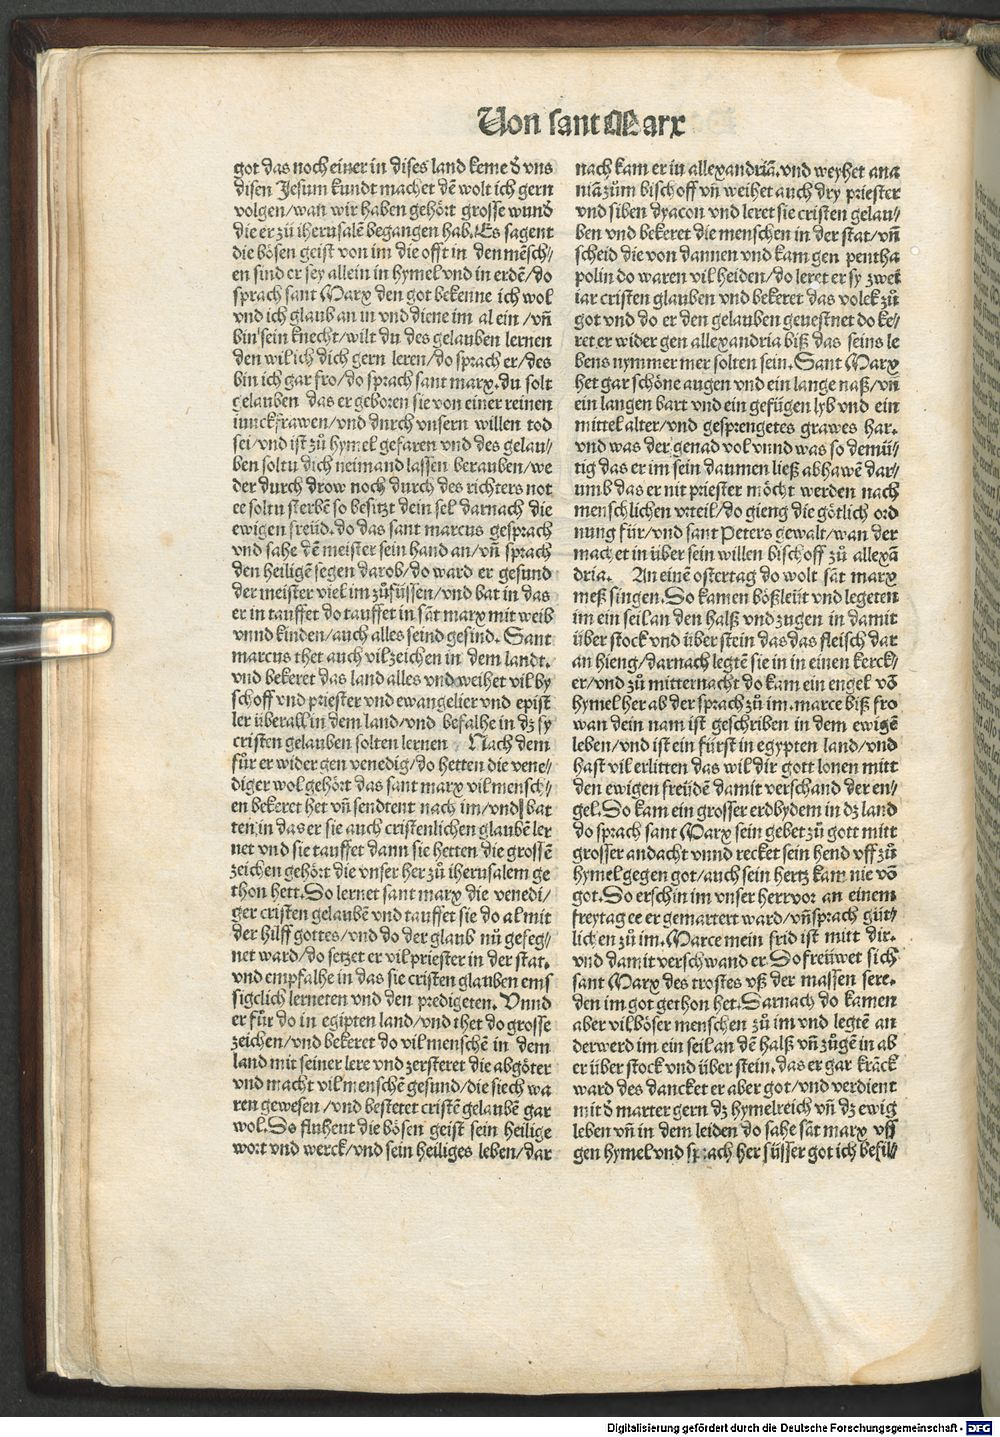 Von sant Marx
got das noch einer in dises land keme d̄ vns
disen Jesum kundt machet dē wolt ich gern
volgen/wan wir haben gehört grosse wund̄
die er zů iherusalē begangen hab. Es sagent
die bösen geist von im die offt in den mēsch⸗
en sind er sey allein in hymel vnd in erdē/do
sprach sant Marx den got bekenne ich wol
vnd ich glaub an in vnd diene im al ein/vñ
bin sein knecht/wilt du des gelauben lernen
den wil ich dich gern leren/do sprach er/des
bin ich gar fro/do sprach sant marx. du solt
gelauben das er geboren sie von einer reinen
iunckfrawen/vnd durch vnsern willen tod
sei/vnd ist zů hymel gefaren vnd des gelau⸗
ben soltu dich neimand lassen berauben/we
der durch drow noch durch des richters not
ee soltu sterbē so besitzt dein sel darnach die
ewigen freüd. do das sant marcus gesprach
vnd sahe dē meister sein hand an/vñ sprach
den heiligē segen darob/do ward er gesund
der meister viel im zůfüssen/vnd bat in das
er in tauffet do tauffet in sāt marx mit weib
vnnd kinden/auch alles seind gesind. Sant
marcus thet auch vil zeichen in dem landt.
vnd bekeret das land alles vnd weihet vil by
schoff vnd priester vnd ewangelier vnd epist
ler überall in dem land/vnd befalhe in dz sy
cristen gelauben solten lernen Nach dem
fůr er wider gen venedig/do hetten die vene⸗
diger wol gehört das sant marx vil mensch⸗
en bekeret het vñ sendtent nach im/vnd bat
ten in das er sie auch cristenlichen glaubē ler
net vnd sie tauffet dann sie hetten die grossē
zeichen gehört die vnser her zů iherusalem ge
thon hett. So lernet sant marx die venedi⸗
ger cristen gelaubē vnd tauffet sie do al mit
der hilff gottes/vnd do der glaub nů gefeg⸗
net ward/do setzet er vil priester in der stat.
vnd empfalhe in das sie cristen glauben ems
sigclich lerneten vnd den predigeten. Vnnd
er fůr do in egipten land/vnd thet do grosse
zeichen/vnd bekeret do vil menschē in dem
land mit seiner lere vnd zersteret die abgöter
vnd macht vil menschē gesund/die siech wa
ren gewesen/vnd bestetet cristē gelaubē gar
wol. So fluhent die bösen geist sein heilige
wort vnd werck/vnd sein heiliges leben/dar
nach kam er in allexandriā. vnd weyhet ana
niā zům bischoff vñ weihet auch dry priester
vnd siben dyacon vnd leret sie cristen gelau⸗
ben vnd bekeret die menschen in der stat/vñ
scheid die von dannen vnd kam gen pentha
polin do waren vil heiden/do leret er sy zwei
iar cristen glauben vnd bekeret das volck zů
got vnd do er den gelauben geuestnet do ke⸗
ret er wider gen allexandria biß das seins le
bens nymmer mer solten sein. Sant Marx
het gar schöne augen vnd ein lange naß/vñ
ein langen bart vnd ein gefügen lyb vnd ein
mittel alter/vnd gesprengetes grawes har.
vnd was der genad vol vnnd was so demü⸗
tig das er im sein daumen ließ abhawē dar⸗
umb das er nit priester möcht werden nach
menschlichen vrteil/do gieng die götlich ord
nung für/vnd sant Peters gewalt/wan der
machet in über sein willen bischoff zů allexā
dria. An einē ostertag do wolt sāt marx
meß singen. So kamen bößleüt vnd legeten
im ein seil an den halß vnd zugen in damit
über stock vnd über stein das das fleisch dar
an hieng/darnach legtē sie in in einen kerck⸗
er/vnd zů mitternacht do kam ein engel vō
hymel her ab der sprach zů im. marce biß fro
wan dein nam ist geschriben in dem ewigē
leben/vnd ist ein fürst in egypten land/vnd
hast vil erlitten das wil dir gott lonen mitt
den ewigen freüdē damit verschand der en⸗
gel. So kam ein grosser erdbydem in dz land
do sprach sant Marx sein gebet zů gott mitt
grosser andacht vnnd recket sein hend vff zů
hymel gegen got/auch sein hertz kam nie vō
got. So erschin im vnser herr vor an einem
freytag ee er gemartert ward/vñ sprach güt⸗
lichen zů im. Marce mein frid ist mitt dir.
vnd damit verschwand er So freüwet sich
sant Marx des trostes vß der massen sere.
den im got gethon het. Sarnach do kamen
aber vil böser menschen zů im vnd legtē an
derwerd im ein seil an dē halß vñ zůgē in ab
er über stock vnd über stein. das er gar krāck
ward des dancket er aber got/vnd verdient
mit d̄ marter gern dz hymelreich vñ dz ewig
leben vñ in dem leiden do sahe sāt marx vff
gen hymel vnd sprach her süsser got ich befil⸗
Digitalisierung gefördert durch die Deutsche Forschungsgemeinschaft - DFG